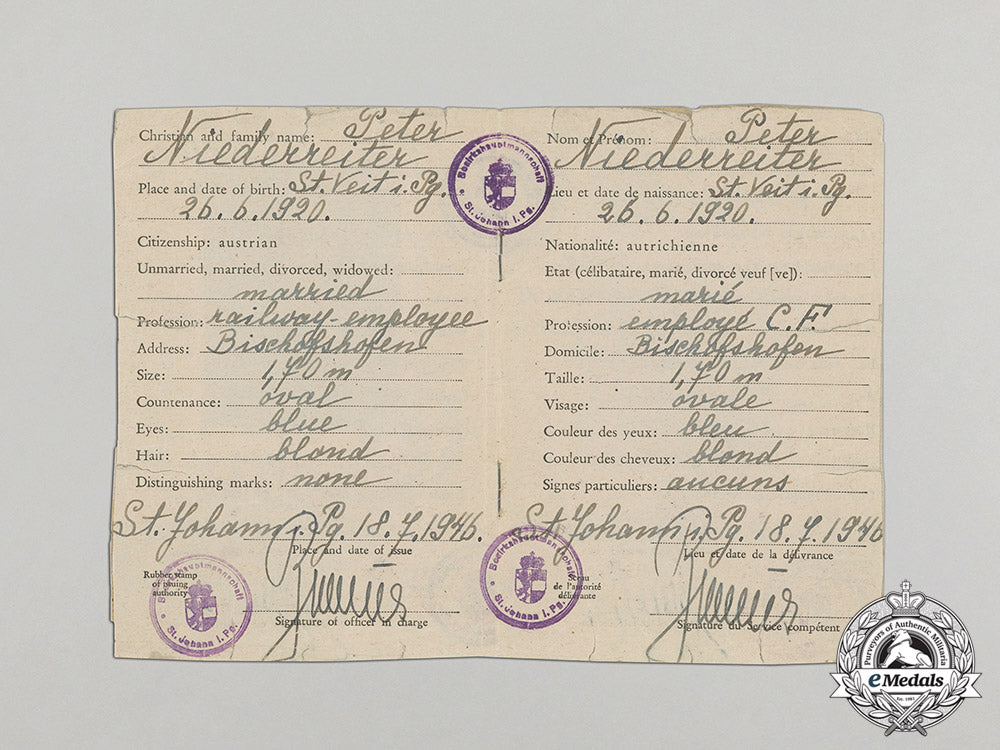 Christian and family name: Peter
Niederreiter
Place and date of birth: St. Veit i. Pg.
26. 6. 1920.
Citizenship: austrian
Unmarried, married, divorced, widowed:
married
Profession: railway-employee
Address: Bischofshofen
Size: 1,70 m
Countenance: oval
Eyes: blue
Hair: blond
Distinguishing marks: none
St. Johann i. Pg. 18. 7. 1946.
Place and date of issue
Rubber stamp
of issuing
authority
Signature of officer in charge
Bezirkshauptmannschaft
St. Johann i. Pg.
Bezirkshauptmannschaft
St. Johann i. Pg.
Nom et Prénom: Peter
Niederreiter
Lieu et date de naissance: St. Veit i. Pg.
26. 6. 1920.
Nationalité: autrichienne
Etat (célibataire, marié, divorcé veuf [ve]):
marié
Profession: employé C.F.
Domicile: Bischofshofen
Taille: 1,70 m
Visage: ovale
Couleur des yeux: bleu
Couleur des cheveux: blond
Signes particuliers: aucuns
St. Johann i. Pg. 18. 7. 1946
Lieu et date de la délivrance
Sceau
de l'autorité
délivrante
Signature du Service compétent
Bezirkshauptmannschaft
St. Johann i. Pg.
Purveyors of Authentic Militaria
eMedals
Est. 1981